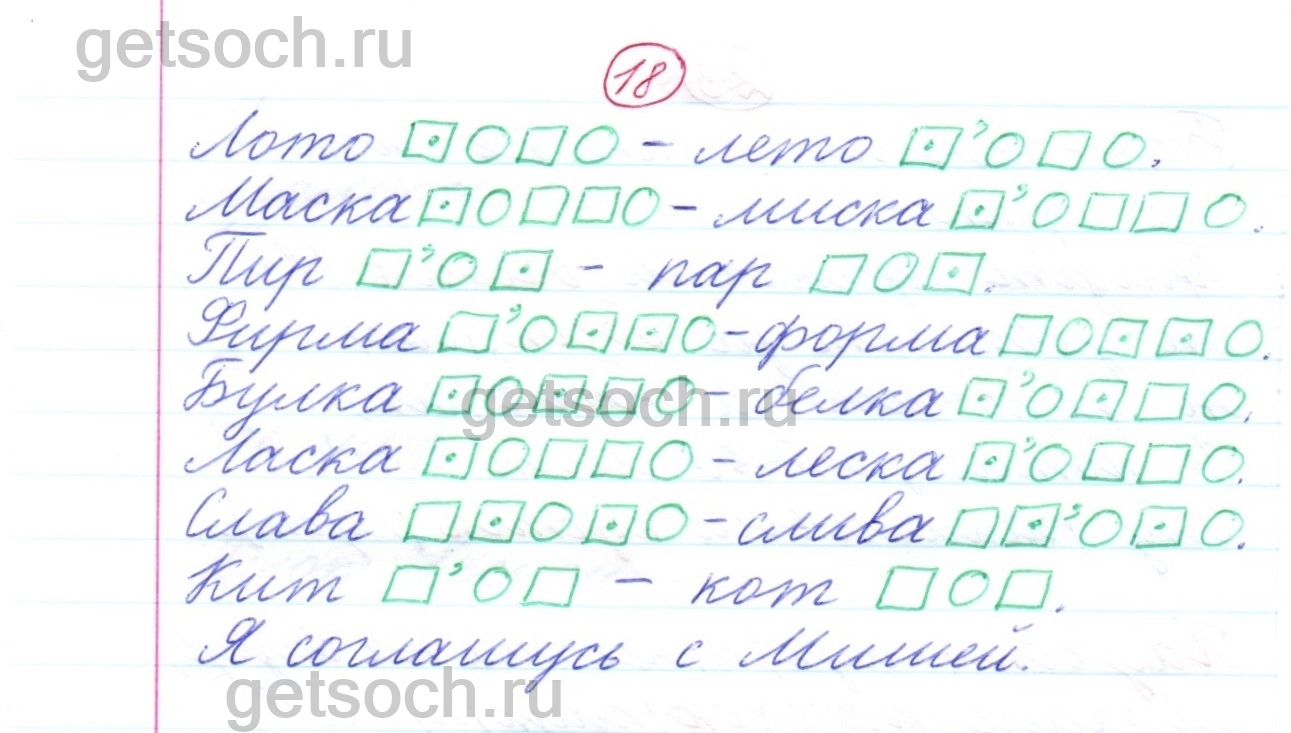 getsoch.ru
18
Лото – лето.
Маска – миска.
Пир – пар.
Фирма – форма.
Булка – белка.
getsoch.ru
Ласка – леска.
Слава – слива.
Кит – кот.
Я соглашусь с Мишей.
getsoch.ru